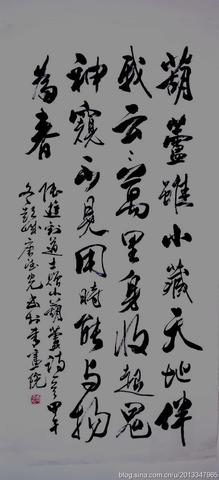 葫蘆雖小藏天地伴
我云山萬里身收起鬼
神窺不見用時能与物
為春
陸游劉道士贈小葫蘆詩 甲午
blog.sina.com.cn/u/2013347965